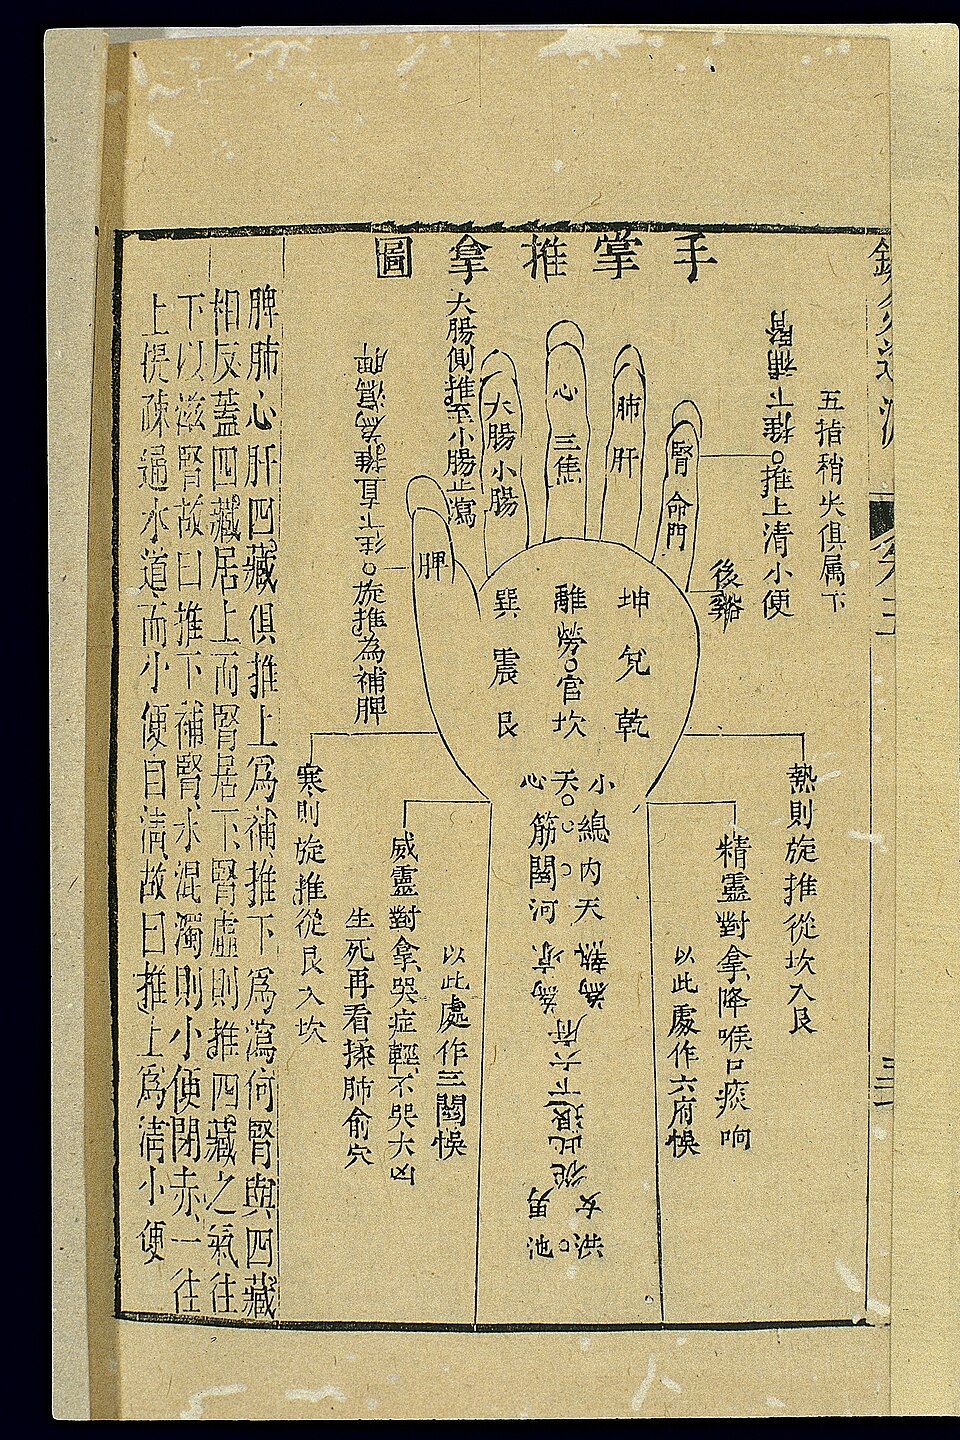 手掌推拿圖
五指稍尖俱属下
腎補下推○推上清小便
後谿
腎命門
肺肝
心三焦
大腸小腸
大腸側推至小腸止瀉
脾
脾瀉為推直下往○旋推為補脾
坤兌乾
離勞○官坎
巽震艮
小天心
總筋
內閞
天河
熱則旋推從坎入艮
精靈對拿降喉口痰响
以此處作六府悞
以此處作三閞悞
威靈對拿哭症輕不哭大凶
生死再看揉肺俞穴
寒則旋推從艮入坎
為熱
為凉
從此退下六府
男女
洪○池
脾肺心肝四藏俱推上爲補推下爲瀉何腎與四藏
相反蓋四藏居上而腎居下腎虛則推四藏之氣往
下以滋腎故曰推下補腎水混濁則小便閉赤一往
上提疎通水道而小便自清故曰推上爲清小便